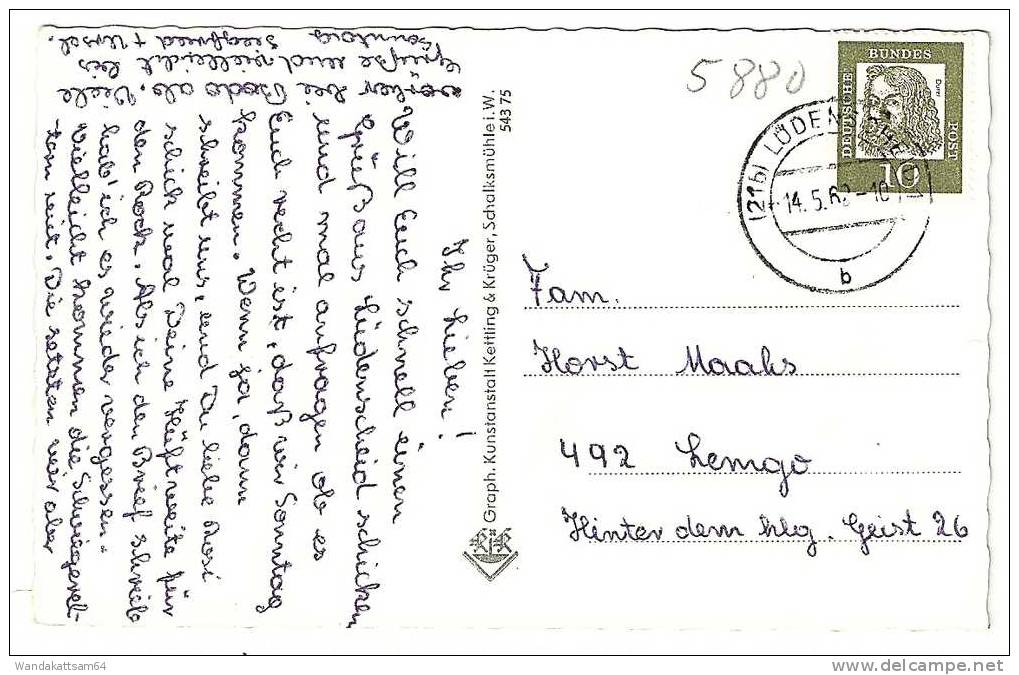 Ihr Lieben!
Will Euch schnell einen
Grüß aus Lüdenscheid schicken
und mal anfragen ob es
Euch recht ist, daß wir Sonntag
kommen. Wenn ja, dann
schreibt uns, und Du liebe Rosi
schick mal Deine Hüftweite für
den Rock. Als ich den Brief schrieb
hab' ich es wieder vergessen.
Vielleicht kommen die Schwiegerel-
tern mit. Die setzten wir aber
vorher bei Bodo ab. Viele
Grüße und vielleicht bis
Sonntag Siegfried + Ursel.
Graph. Kunstanstalt Kettling & Krüger, Schalksmühle i. W.
543 75
K&K
5880
DEUTSCHE BUNDES POST
Dürer
10
(21b) LÜDENSCHEID
14.5.62-10
b
Fam.
Horst Maahs
492 Lemgo
Hinter dem hlg. Geist 26
Wandakattsam64
delcampe.net